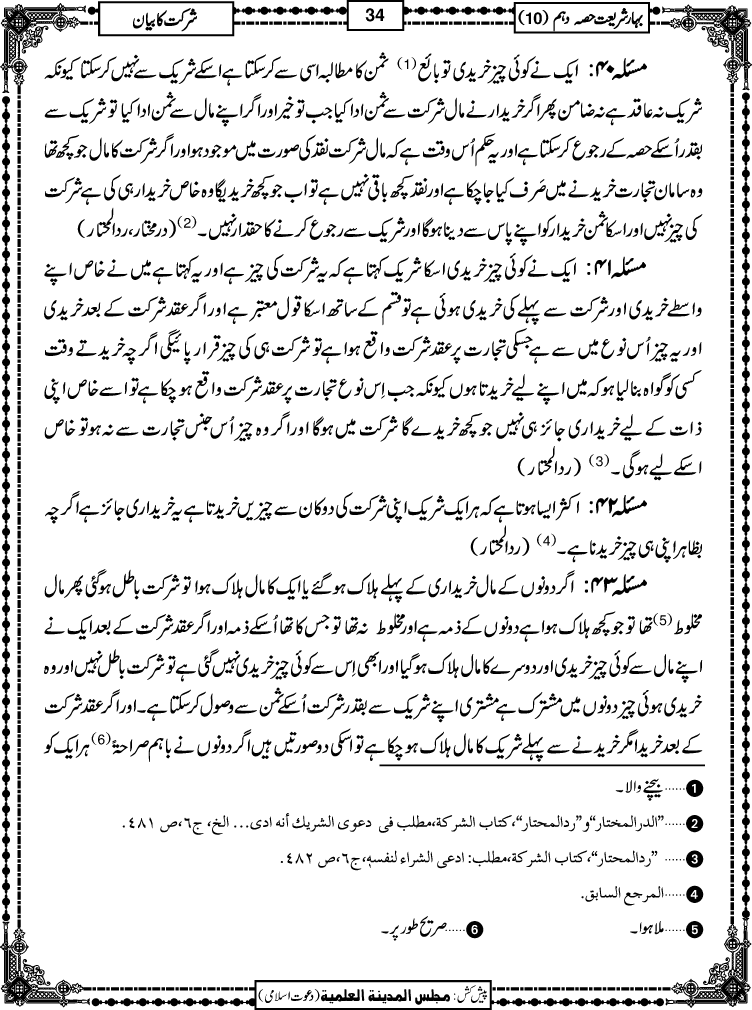 بہار شریعت حصہ دہم (10)
34
شرکت کا بیان
مسئلہ ۴۰: ایک نے کوئی چیز خریدی تو بائع (1) ثمن کا مطالبہ اسی سے کرسکتا ہے اسکے شریک سے نہیں کرسکتا کیونکہ
شریک نہ عاقد ہے نہ ضامن پھر اگر خریدار نے مال شرکت سے ثمن ادا کیا جب تو خیر اور اگر اپنے مال سے ثمن ادا کیا تو شریک سے
بقدر اُسکے حصہ کے رجوع کرسکتا ہے اور یہ حکم اُس وقت ہے کہ مال شرکت نقد کی صورت میں موجود ہو اور اگر شرکت کا مال جو کچھ تھا
وہ سامان تجارت خریدنے میں صَرف کیا جاچکا ہے اور نقد کچھ باقی نہیں ہے تو اب جو کچھ خریدیگا وہ خاص خریدار ہی کی ہے شرکت
کی چیز نہیں اور اسکا ثمن خریدار کو اپنے پاس سے دینا ہوگا اور شریک سے رجوع کرنے کا حقدار نہیں۔ (2) (درمختار، ردالمحتار)
مسئلہ ۴۱: ایک نے کوئی چیز خریدی اسکا شریک کہتا ہے کہ یہ شرکت کی چیز ہے اور یہ کہتا ہے میں نے خاص اپنے
واسطے خریدی اور شرکت سے پہلے کی خریدی ہوئی ہے تو قسم کے ساتھ اسکا قول معتبر ہے اور اگر عقد شرکت کے بعد خریدی
اور یہ چیز اُس نوع میں سے ہے جسکی تجارت پر عقد شرکت واقع ہوا ہے تو شرکت ہی کی چیز قرار پائیگی اگرچہ خریدتے وقت
کسی کو گواہ بنالیا ہو کہ میں اپنے لیے خریدتا ہوں کیونکہ جب اِس نوع تجارت پر عقد شرکت واقع ہوچکا ہے تو اسے خاص اپنی
ذات کے لیے خریداری جائز ہی نہیں جو کچھ خریدے گا شرکت میں ہوگا اور اگر وہ چیز اُس جنس تجارت سے نہ ہو تو خاص
اسکے لیے ہوگی۔ (3) (ردالمحتار)
مسئلہ ۴۲: اکثر ایسا ہوتا ہے کہ ہر ایک شریک اپنی شرکت کی دوکان سے چیزیں خریدتا ہے یہ خریداری جائز ہے اگرچہ
بظاہر اپنی ہی چیز خریدنا ہے۔ (4) (ردالمحتار)
مسئلہ ۴۳: اگر دونوں کے مال خریداری کے پہلے ہلاک ہوگئے یا ایک کا مال ہلاک ہوا تو شرکت باطل ہوگئی پھر مال
مخلوط (5) تھا تو جو کچھ ہلاک ہوا ہے دونوں کے ذمہ ہے اور مخلوط نہ تھا تو جس کا تھا اُسکے ذمہ اور اگر عقد شرکت کے بعد ایک نے
اپنے مال سے کوئی چیز خریدی اور دوسرے کا مال ہلاک ہوگیا اور ابھی اِس سے کوئی چیز خریدی نہیں گئی ہے تو شرکت باطل نہیں اور وہ
خریدی ہوئی چیز دونوں میں مشترک ہے مشتری اپنے شریک سے بقدر شرکت اُسکے ثمن سے وصول کرسکتا ہے۔ اور اگر عقد شرکت
کے بعد خریدا مگر خریدنے سے پہلے شریک کا مال ہلاک ہوچکا ہے تو اسکی دو صورتیں ہیں اگر دونوں نے باہم صراحۃً (6) ہر ایک کو
1 ......بیچنے والا۔
2 ......"الدرالمختار" و "ردالمحتار"، کتاب الشرکة، مطلب فی دعوی الشریك أنه ادی... الخ، ج٦، ص ٤٨١.
3 ...... "ردالمحتار"، کتاب الشرکة، مطلب: ادعی الشراء لنفسه، ج٦، ص ٤٨٢.
4 ......المرجع السابق.
5 ......ملا ہوا۔ 6 ......صریح طور پر۔
پیش کش: مجلس المدینة العلمیة (دعوت اسلامی)